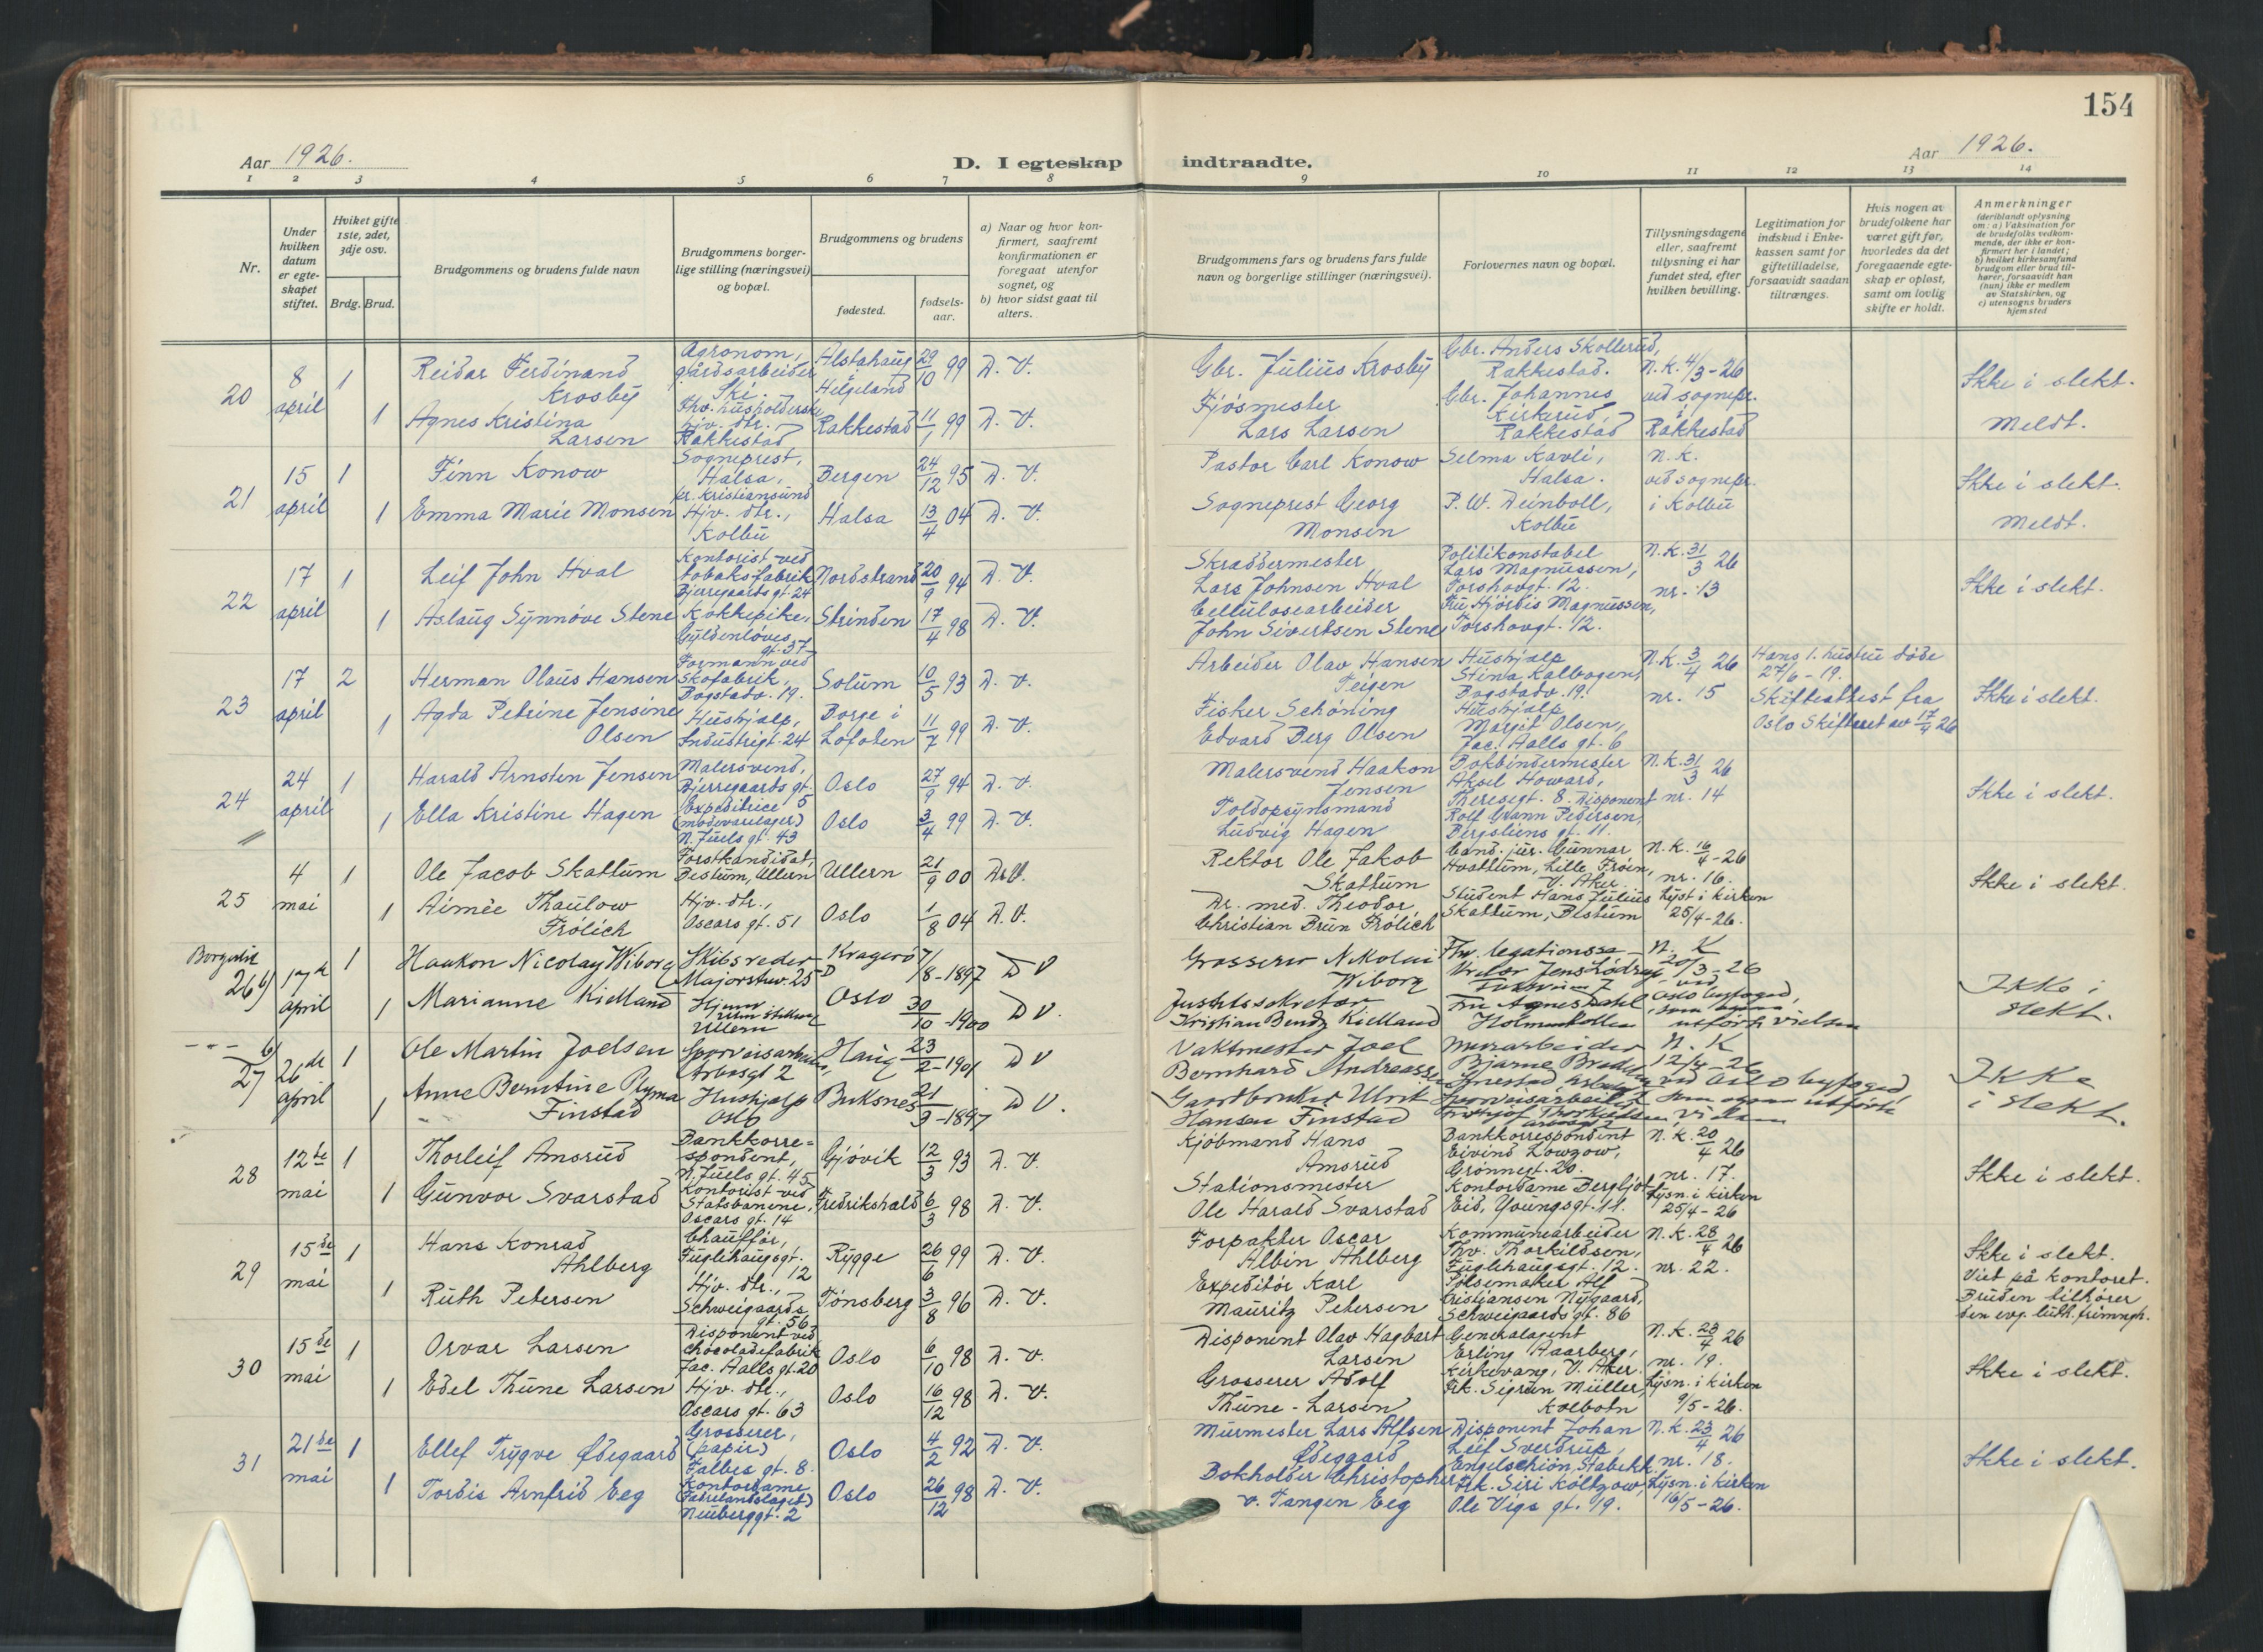 154
Aar 1926.
D. I egteskap indtraadte.
Aar 1926.
1 2 3 4 5 6 7 8 9 10 11 12 13 14
Nr.
Under hvilken datum er egteskapet stiftet.
Hvilket gifte 1ste, 2det, 3dje osv.
Brdg. Brud.
Brudgommens og brudens fulde navn
Brudgommens borgerlige stilling (næringsvei) og bopæl.
Brudgommens og brudens
fødested.
fødselsaar.
a) Naar og hvor konfirmert, saafremt konfirmationen er foregaat utenfor sognet, og
b) hvor sidst gaat til alters.
Brudgommens fars og brudens fars fulde navn og borgerlige stillinger (næringsvei).
Forlovernes navn og bopæl.
Tillysningsdagene eller, saafremt tillysning ei har fundet sted, efter hvilken bevilling.
Legitimation for indskud i Enkekassen samt for giftetilladelse, forsaavidt saadan tiltrænges.
Hvis nogen av brudefolkene har været gift før, hvorledes da det foregaaende egteskap er opløst, samt om lovlig skifte er holdt.
Anmerkninger
(deriblandt oplysning om: a) Vaksination for de brudefolks vedkommende, der ikke er konfirmert her i landet;
b) hvilket kirkesamfund brudgom eller brud tilhører, forsaavidt han (hun) ikke er medlem av Statskirken, og
c) utensogns bruders hjemsted
20
8 april
1
Reidar Ferdinand Krosby
Agronom, gårdsarbeider Ski.
Alstahaug i Helgeland
29/10 99
D. V.
Gbr. Julius Krosby
Gbr. Anders Skollerud, Rakkestad.
N.K. 4/3-26 ved sognepr. i Rakkestad
Ikke i slekt.
1
Agnes Kristina Larsen
Fhv. husholderske hjv. dtr., Rakkestad
Rakkestad
11/1 99
D. V.
Fjøsmester Lars Larsen
Gbr. Johannes Kirkerud, Rakkestad
Meldt.
21
15 april
1
Finn Konow
Sogneprest, Halsa, pr. Kristiansund
Bergen
24/12 95
D. V.
Pastor Carl Konow
Selma Kavli, Halsa.
N.K. ved sognepr. i Kolbu
Ikke i slekt.
1
Emma Marie Monsen
Hjv. dtr., Kolbu
Halsa
13/4 04
D. V.
Sogneprest Georg Monsen
P. W. Deinboll, Kolbu
Meldt.
22
17 april
1
Leif John Hval
Kontorist ved tobaksfabrik Bjerregaards gt. 24
Nordstrand
20/9 94
D. V.
Skræddermester Lars Johnsen Hval
Politikonstabel Lars Magnussen, Torshovgt. 12.
N.K. 31/3 26 nr. 13
Ikke i slekt.
1
Aslaug Synnøve Stene
Kokkepike, Gyldenløves gt. 37
Strinden
17/4 98
D. V.
Cellulosearbeider John Sivertsen Stene
Fru Hjørdis Magnussen, Torshovgt. 12.
23
17 april
2
Herman Olaus Hansen
Formann ved skofabrik, Bogstadv. 19.
Solum
10/5 93
D. V.
Arbeider Olav Hansen Teigen
Hushjelp Stina Kalbagen, Bogstadv. 19.
N.K. 3/4 26 nr. 15
Hans 1. hustru døde 27/6 - 19. Skifteattest fra Oslo Skifteret av 17/4 26
Ikke i slekt.
1
Agda Petrine Jensine Olsen
Hushjelp, Industrigt. 24
Borge i Lofoten
11/7 99
D. V.
Fisker Schøning Edvard Berg Olsen
Hushjelp Margit Olsen, Jac. Aalls gt. 6
24
24 april
1
Harald Arnsten Jensen
Malersvend, Bjerregaards gt. 5
Oslo
27/9 94
D. V.
Malersvend Haakon Jensen
Bokbindermester Aksel Howard, Theresegt. 8.
N.K. 31/3 26 nr. 14
Ikke i slekt.
1
Ella Kristine Hagen
Expeditrice (motevarelager) N. Juels gt. 43
Oslo
3/4 99
D. V.
Toldopsynsmand Ludvig Hagen
Disponent Rolf Grann Pedersen, Bergsliens gt. 11.
25
4 mai
1
Ole Jacob Skattum
Forstkandidat, Bestum, Ullern
Ullern
21/9 00
D. V.
Rektor Ole Jakob Skattum
Cand. jur. Gunnar Hvattum, Lille Frøen, V. Aker
N.K. 16/4-26 nr. 16. Lyst i kirken 25/4-26.
Ikke i slekt.
1
Aimée Thaulow Frölich
Hjv. dtr., Oscars gt. 51
Oslo
1/8 04
D. V.
Dr. med. Theodor Christian Brun Frölich
Student Hans Julius Skattum, Bestum
Borgerlig
26
17de april
1
Haakon Nicolay Wiborg
Skibsreder Majorstuv. 25 D
Kragerø
7/8-1897
D V
Grosserer Nikolai Wiborg
Fhv. legationssa-
N. K 20/3-26 ved Oslo byfoged, som utførte vielsen
Ikke i slekt.
1
Marianne Kielland
Hjem. uten stilling Ullern
Oslo
30/10-1900
D V.
Justissekretær Kristian Bendz Kielland
Fru Agnes Dahl Holmenkollen
27
26de april
1
Ole Martin Joelsen
Sporveisarbeider, Arbosgt 2
Haug
23/2-1901
D V
Vaktmester Joel Bernhard Andreassen
Murarbeider Bjarne
N. K 12/4-26 ved Oslo byfoged som utførte
Ikke i slekt.
1
Anne Berntine Plyma Finstad
Hushjelp Oslo
Buksnes
21/3-1897
D V.
Gaardbruker Ulrik Hansen Finstad
Sporveisarbeider
28
12te mai
1
Thorleif Amsrud
Bankkorrespondent, N. Juels gt. 45
Gjøvik
12/3 93
D. V.
Kjøbmand Hans Amsrud
Bankkorrespondent Eivind Lowzow, Grønnegt. 20.
N.K. 20/4 26 nr. 17. Lysn. i kirken 25/4-26
Ikke i slekt.
1
Gunvor Svarstad
Kontorist ved Statsbanene, Oscars gt. 14
Fredrikshald
6/3 98
D. V.
Stationsmester Ole Harald Svarstad
Kontordame Bergljot Eid, Youngsgt. 11.
29
15de mai
1
Hans Konrad Ahlberg
Chauffør, Fuglehaugsgt. 12
Rygge
26/6 99
D. V.
Forpakter Oscar Albin Ahlberg
Kommunearbeider Thv. Thorkildsen, Fuglehaugsgt. 12.
N.K. 28/4 26 nr. 22.
Ikke i slekt. Viet på kontoret. Bruden tilhører den evg. luth. frimngh.
1
Ruth Petersen
Hjv. dtr., Schweigaards gt. 56
Tønsberg
3/8 96
D. V.
Expeditør Karl Mauritz Petersen
Pølsemaker Alf Kristiansen Nygaard, Schweigaards gt. 86
30
15de mai
1
Orvar Larsen
Disponent ved chocoladefabrik Jac. Aalls gt. 20
Oslo
6/10 98
D. V.
Disponent Olav Hagbart Larsen
Generalagent Erling Aaarberg, Kirkevang, V. Aker.
N.K. 23/4 26 nr. 19. Lysn. i kirken 9/5-26.
Ikke i slekt.
1
Edel Thune Larsen
Hjv. dtr., Oscars gt. 63
Oslo
16/12 98
D. V.
Grosserer Adolf Thune-Larsen
Frk. Sigrun Müller, Kolbotn
31
21de mai
1
Ellef Trygve Ødegaard
Grosserer, (papir) Falbes gt. 8.
Oslo
4/2 92
D. V.
Murmester Lars Alfsen Ødegaard
Disponent Johan Leif Sverdrup, Engelschiøn, Stabekk
N.K. 23/4 26 nr. 18. Lysn. i kirken 16/5-26.
Ikke i slekt.
1
Tordis Arnfrid Eeg
Kontordame (Fædrelandslaget) Neuberggt. 2
Oslo
26/12 98
D. V.
Bokholder Christopher v. Tangen Eeg
Frk. Siri Költzow, Ole Vigs gt. 19.